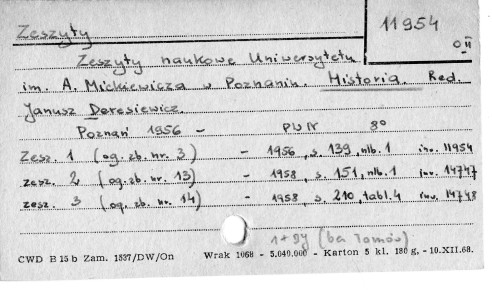 Zeszyty
11954
0 II
Zeszyty naukowe Uniwersytetu
im. A. Mickiewicza w Poznaniu. Historia. Red.
Janusz Deresiewicz.
Poznań 1956 - PWN 8°
Zesz. 1 (og. zb. nr. 3) - 1956, s. 139, nlb. 1 inw. 11954
zesz. 2 (og. zb. nr. 13) - 1958, s. 151, nlb. 1 inw. 14747
zesz. 3 (og. zb. nr. 14) - 1958, s. 210, tabl. 4 inw. 14748
(bez Tomów)
CWD B 15 b Zam. 1537/DW/On Wrak 1068 - 5.040.000 - Karton 5 kl. 180 g. - 10.XII.68.